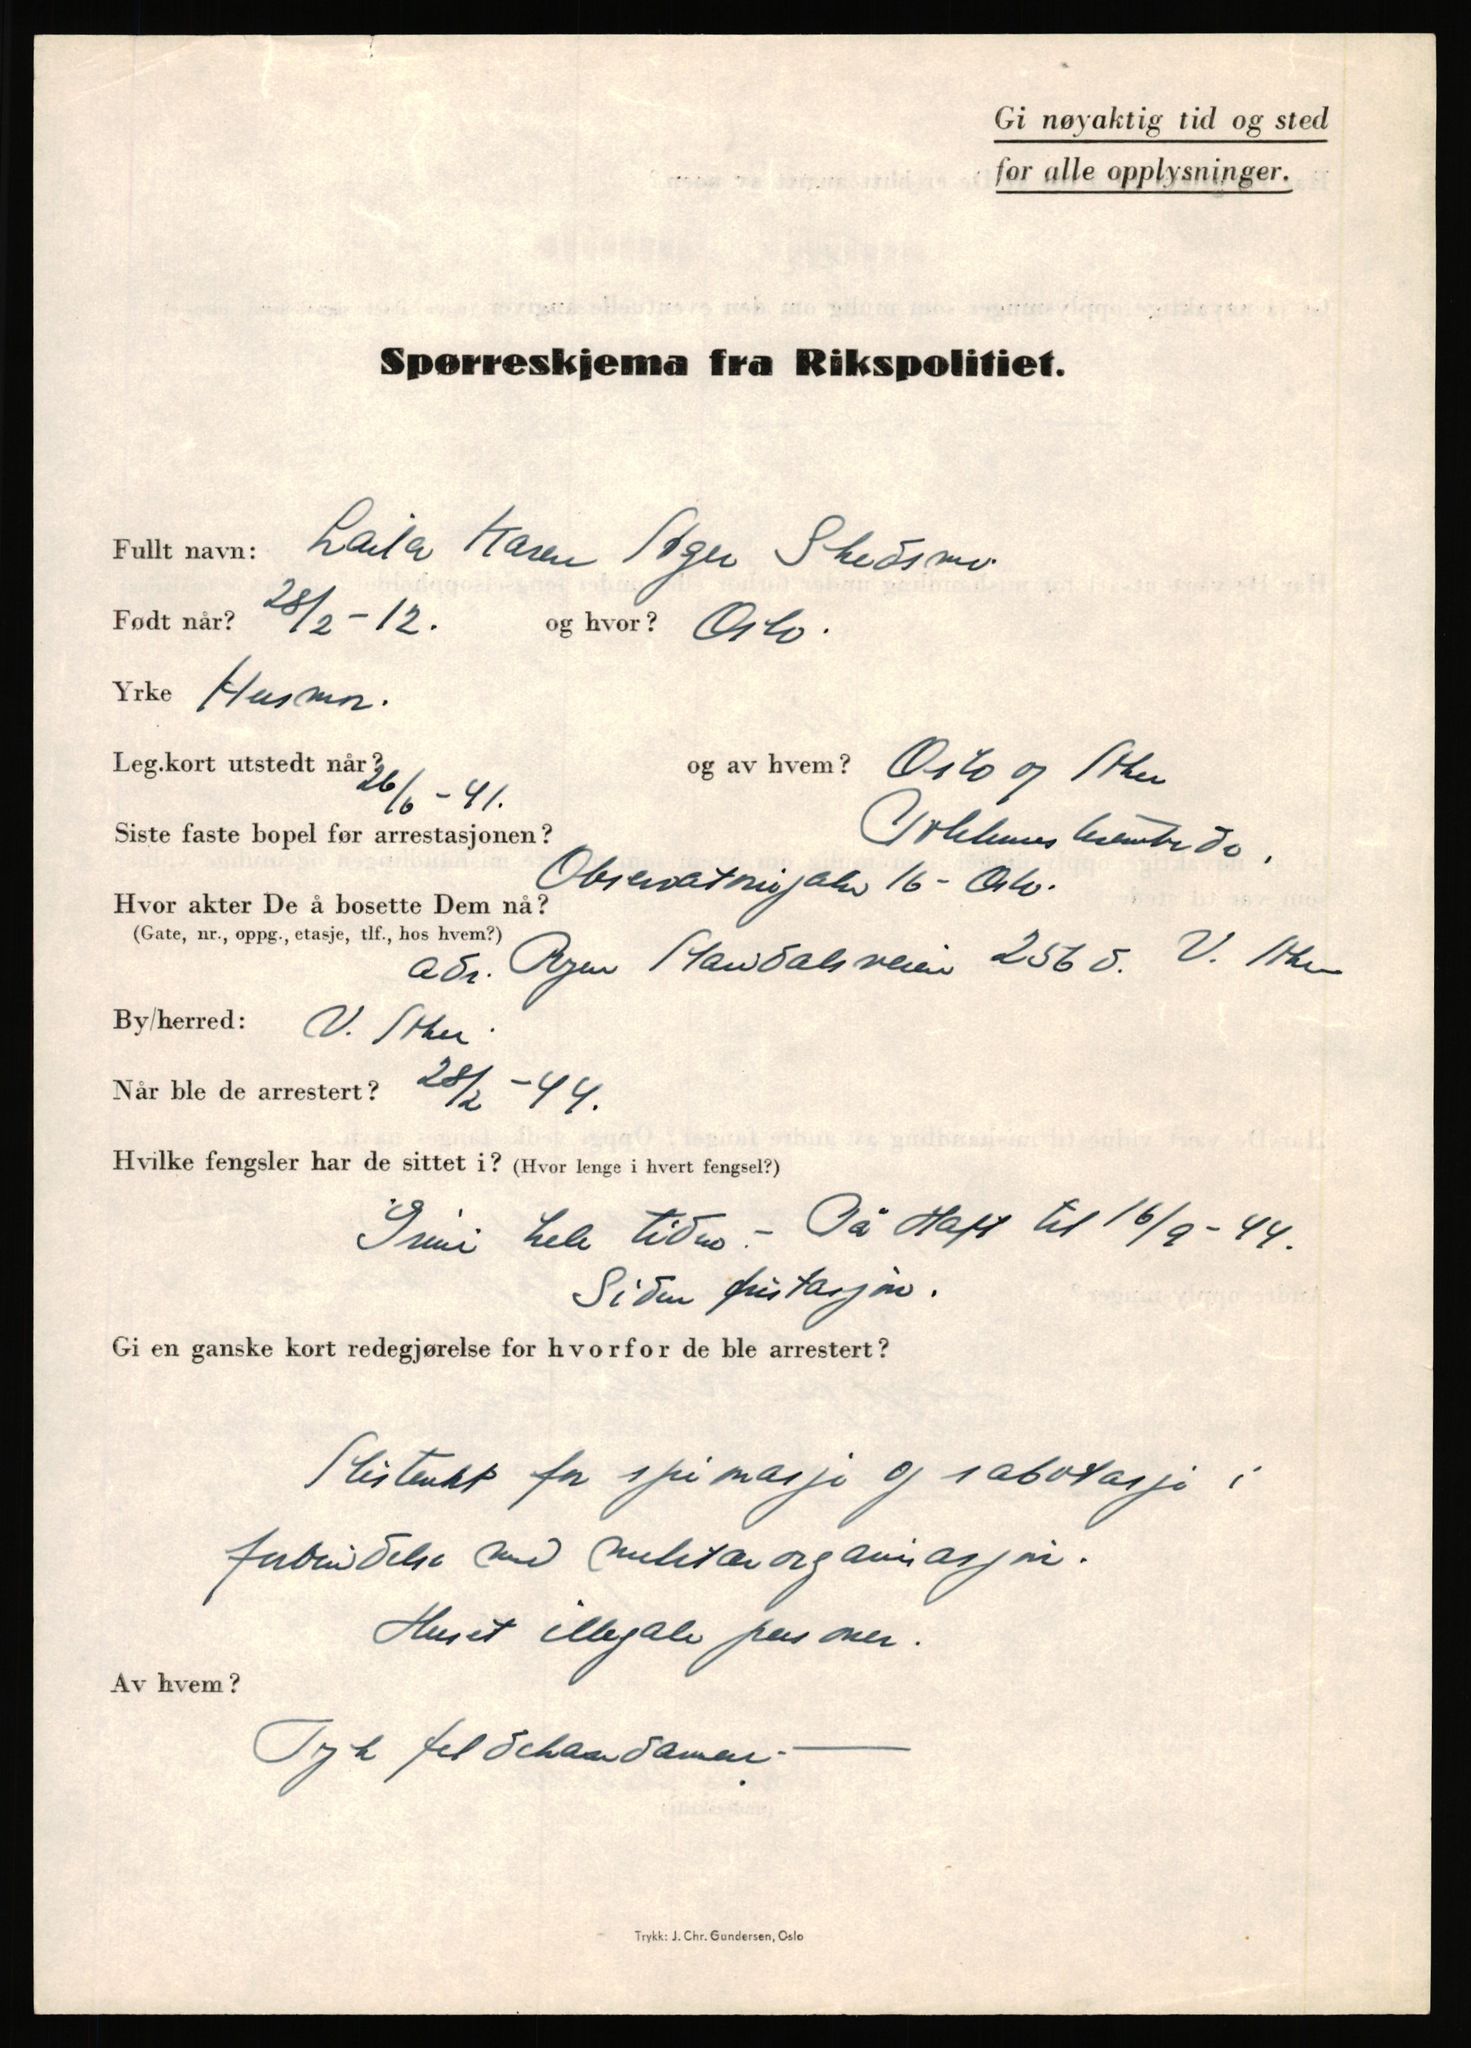 Gi nøyaktig tid og sted
for alle opplysninger.
Spørreskjema fra Rikspolitiet.
Fullt navn: Laila Karen Skedsmo.
Født når? 28/2 - 12. og hvor? Oslo.
Yrke Husmor.
Leg.kort utstedt når? 26/6 - 41. og av hvem? Oslo og Aker
Siste faste bopel før arrestasjonen?
Observatoriegaten 16 - Oslo.
Hvor akter De å bosette Dem nå?
(Gate, nr., oppg., etasje, tlf., hos hvem?)
adr. 256 d. V. Aker
By/herred: V. Aker.
Når ble de arrestert? 28/2 - 44.
Hvilke fengsler har de sittet i? (Hvor lenge i hvert fengsel?)
Grini hele tiden. - På Haft til 16/9 - 44.
Siden
Gi en ganske kort redegjørelse for hvorfor de ble arrestert?
Mistenkt for spionasje og sabotasje i
forbindelse med militærorganisasjon.
Huset illegale personer.
Av hvem?
Tysk
Trykk: J. Chr. Gundersen, Oslo